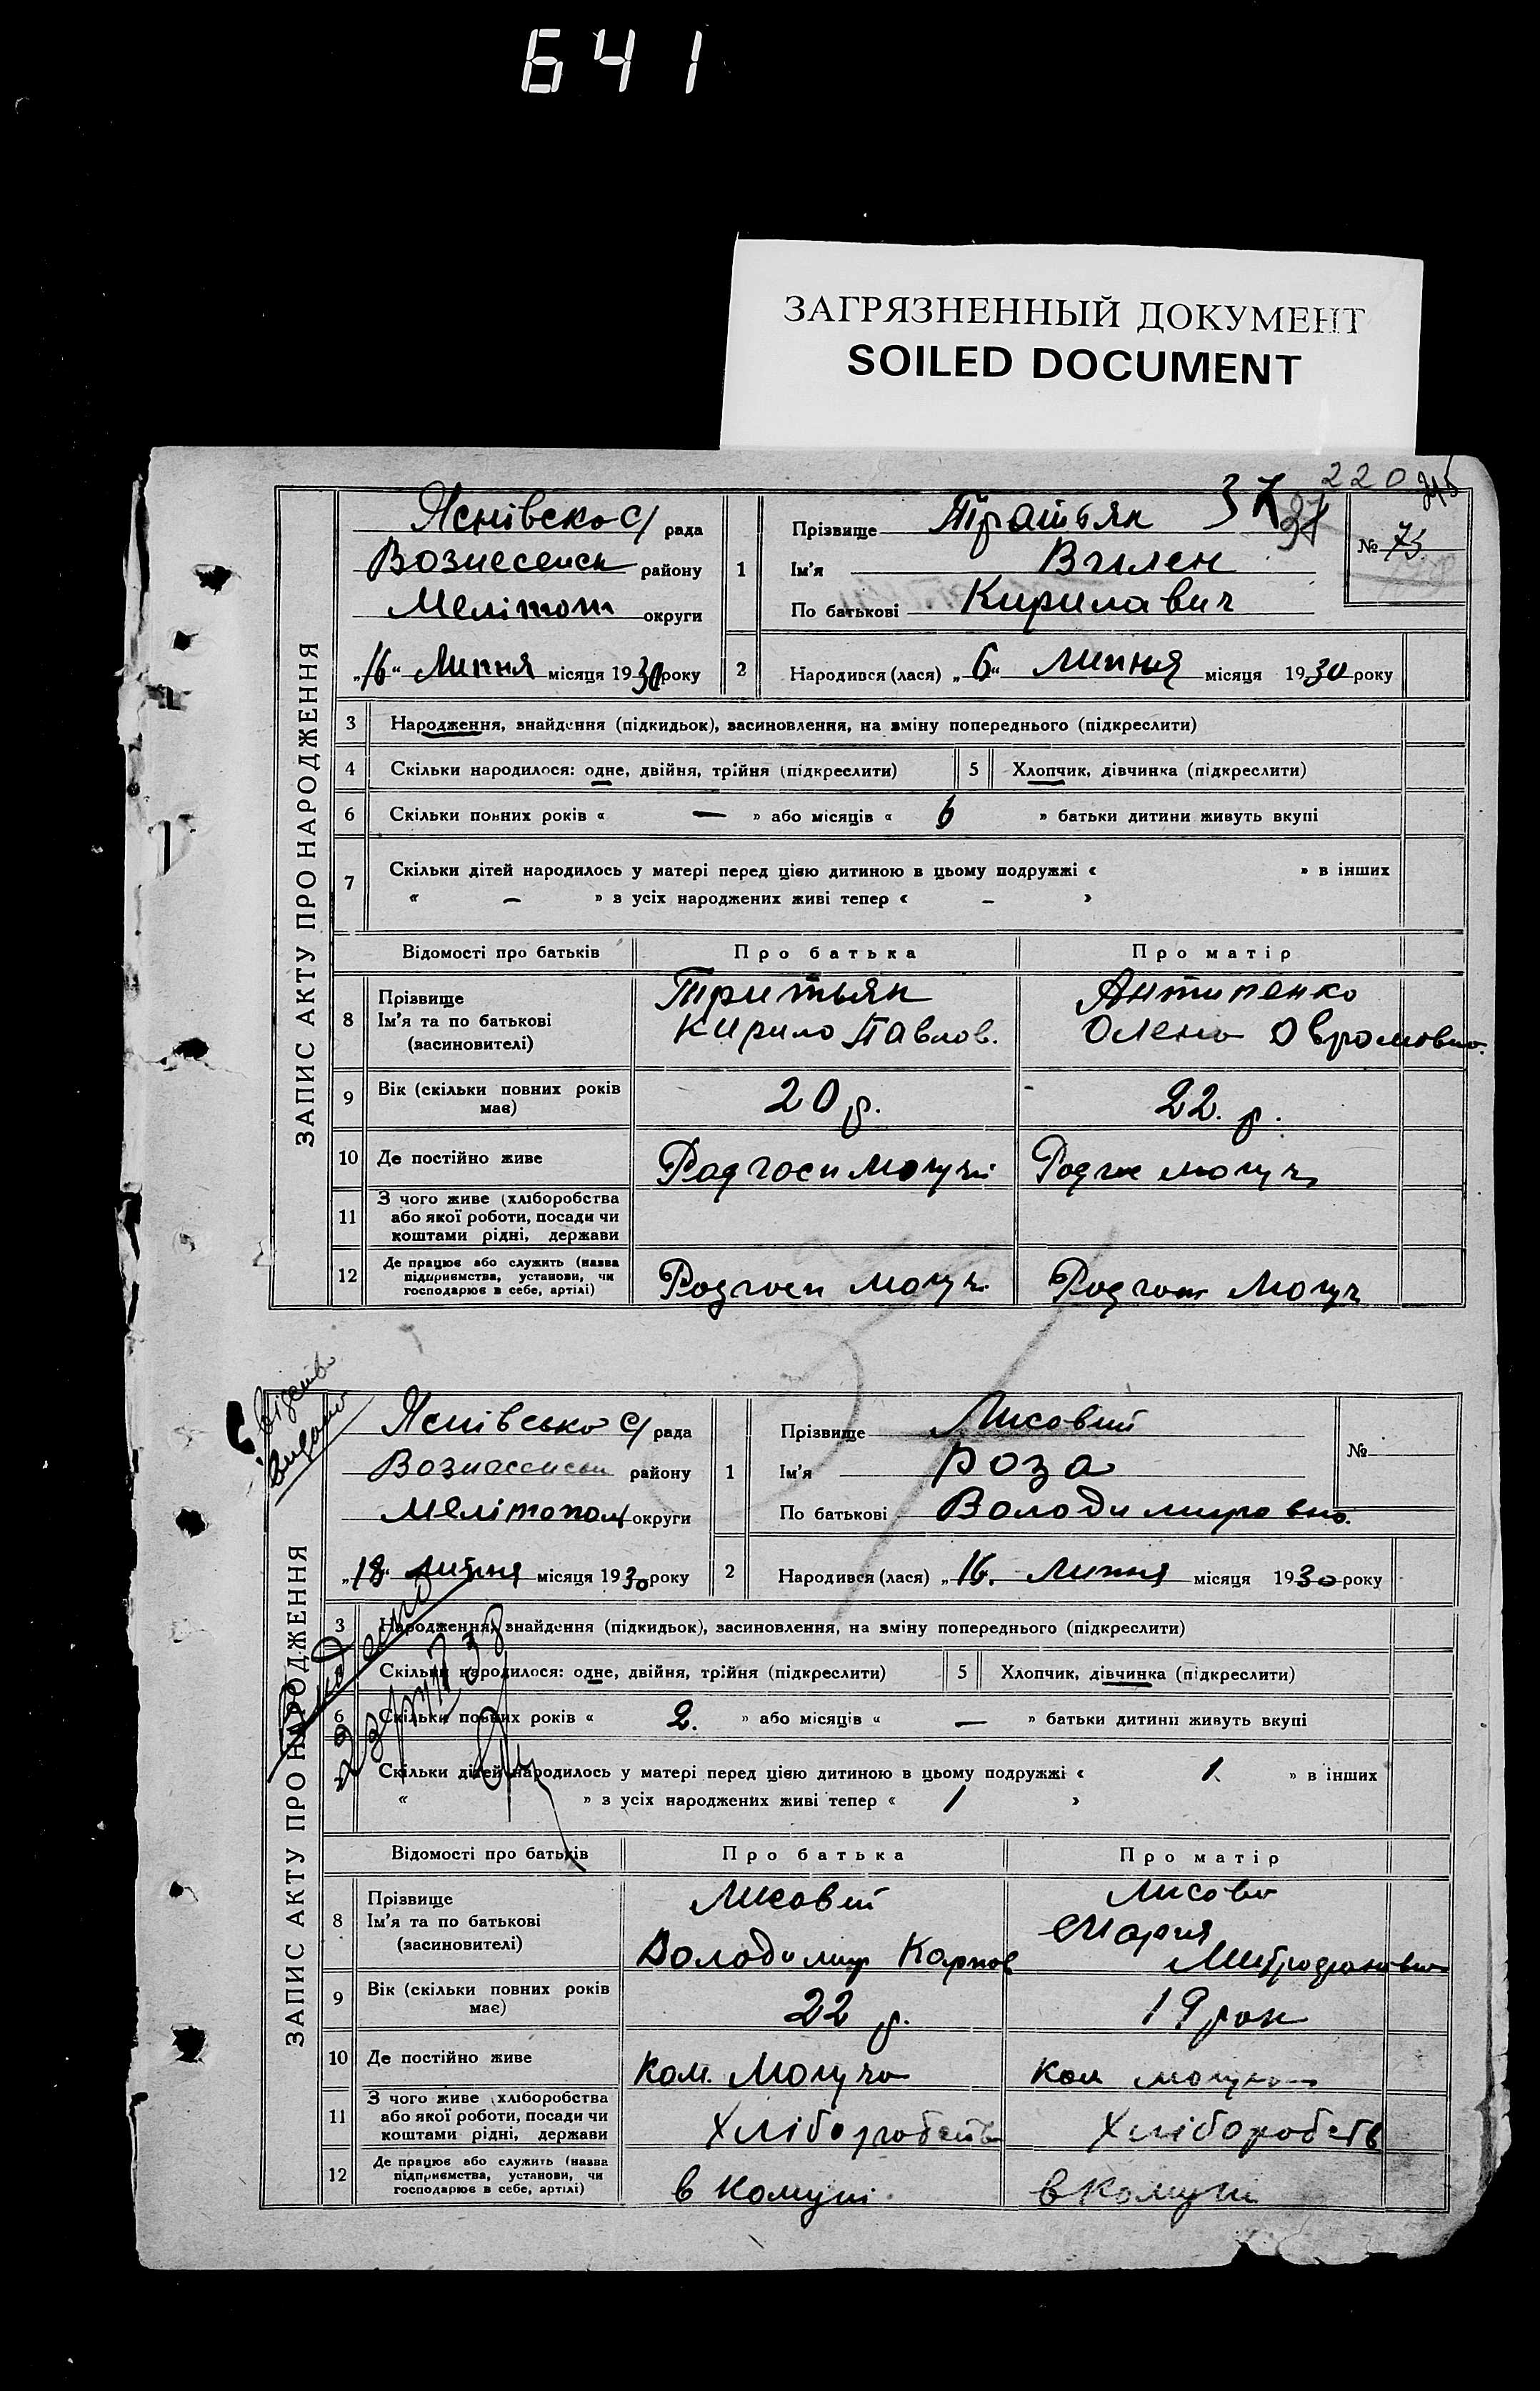 641
ЗАГРЯЗНЕННЫЙ ДОКУМЕНТ
SOILED DOCUMENT
220
37
ЗАПИС АКТУ ПРО НАРОДЖЕННЯ
Яснівсько с/ рада
Вознесенськ району
Мелітоп округи
„16“ Липня місяця 1930 року
1
Прізвище Тратьяк
Ім'я Вилен
По батькові Кирилавич
№ 73.
2 Народився (лася) „6“ Липня місяця 1930 року
3 Народження, знайдення (підкидьок), засиновлення, на зміну попереднього (підкреслити)
4 Скільки народилося: одне, двійня, трійня (підкреслити) 5 Хлопчик, дівчинка (підкреслити)
6 Скільки повних років « — » або місяців « 6 » батьки дитини живуть вкупі
7 Скільки дітей народилось у матері перед цією дитиною в цьому подружжі « » в інших
« – » з усіх народжених живі тепер « – »
Відомості про батьків Про батька Про матір
8 Прізвище Тритьяк Антипенко
Ім'я та по батькові Кирило Павлов. Олена Овромовна.
(засиновителі)
9 Вік (скільки повних років має) 20 р. 22. р.
10 Де постійно живе Радгосп Могучі Радгос Могуч
11 З чого живе (хліборобства
або якої роботи, посади чи
коштами рідні, держави
12 Де працює або служить (назва
підприємства, установи, чи
господарює в себе, артілі) Радгосп Могуч. Радгосп Могуч
видано
ЗАПИС АКТУ ПРО НАРОДЖЕННЯ
Яснівсько с/ рада
Вознесенськ району
Мелітопол округи
„18“ Липня місяця 1930 року
1
Прізвище Лисовий
Ім'я Роза
По батькові Володимировно.
№
2 Народився (лася) „16. Липня місяця 1930 року
3 Народження, знайдення (підкидьок), засиновлення, на зміну попереднього (підкреслити)
Скільки народилося: одне, двійня, трійня (підкреслити) 5 Хлопчик, дівчинка (підкреслити)
6 Скільки повних років « 2. » або місяців « — » батьки дитини живуть вкупі
Скільки дітей народилось у матері перед цією дитиною в цьому подружжі « 1. » в інших
« » з усіх народжених живі тепер « 1 »
Відомості про батьків Про батька Про матір
8 Прізвище Лисовий Лисова
Ім'я та по батькові Володимир Карпов Мария
(засиновителі) Митрофановна
9 Вік (скільки повних років має) 22 р. 19 рок
10 Де постійно живе Ком. Могучо Ком Могучо
11 З чого живе (хліборобства
або якої роботи, посади чи
коштами рідні, держави Хліборобств Хліборобств
12 Де працює або служить (назва
підприємства, установи, чи
господарює в себе, артілі) в Комуні в Комуні